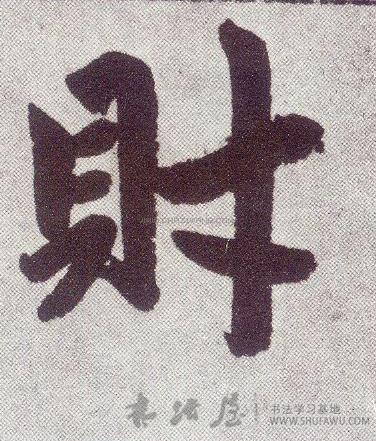 財
书法屋 书法学习基地
WWW.SHUFAWU.COM